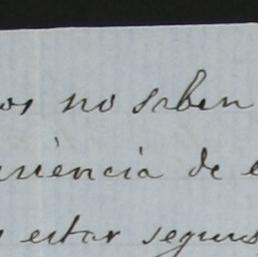 os no saben
riència de e
estar segurs